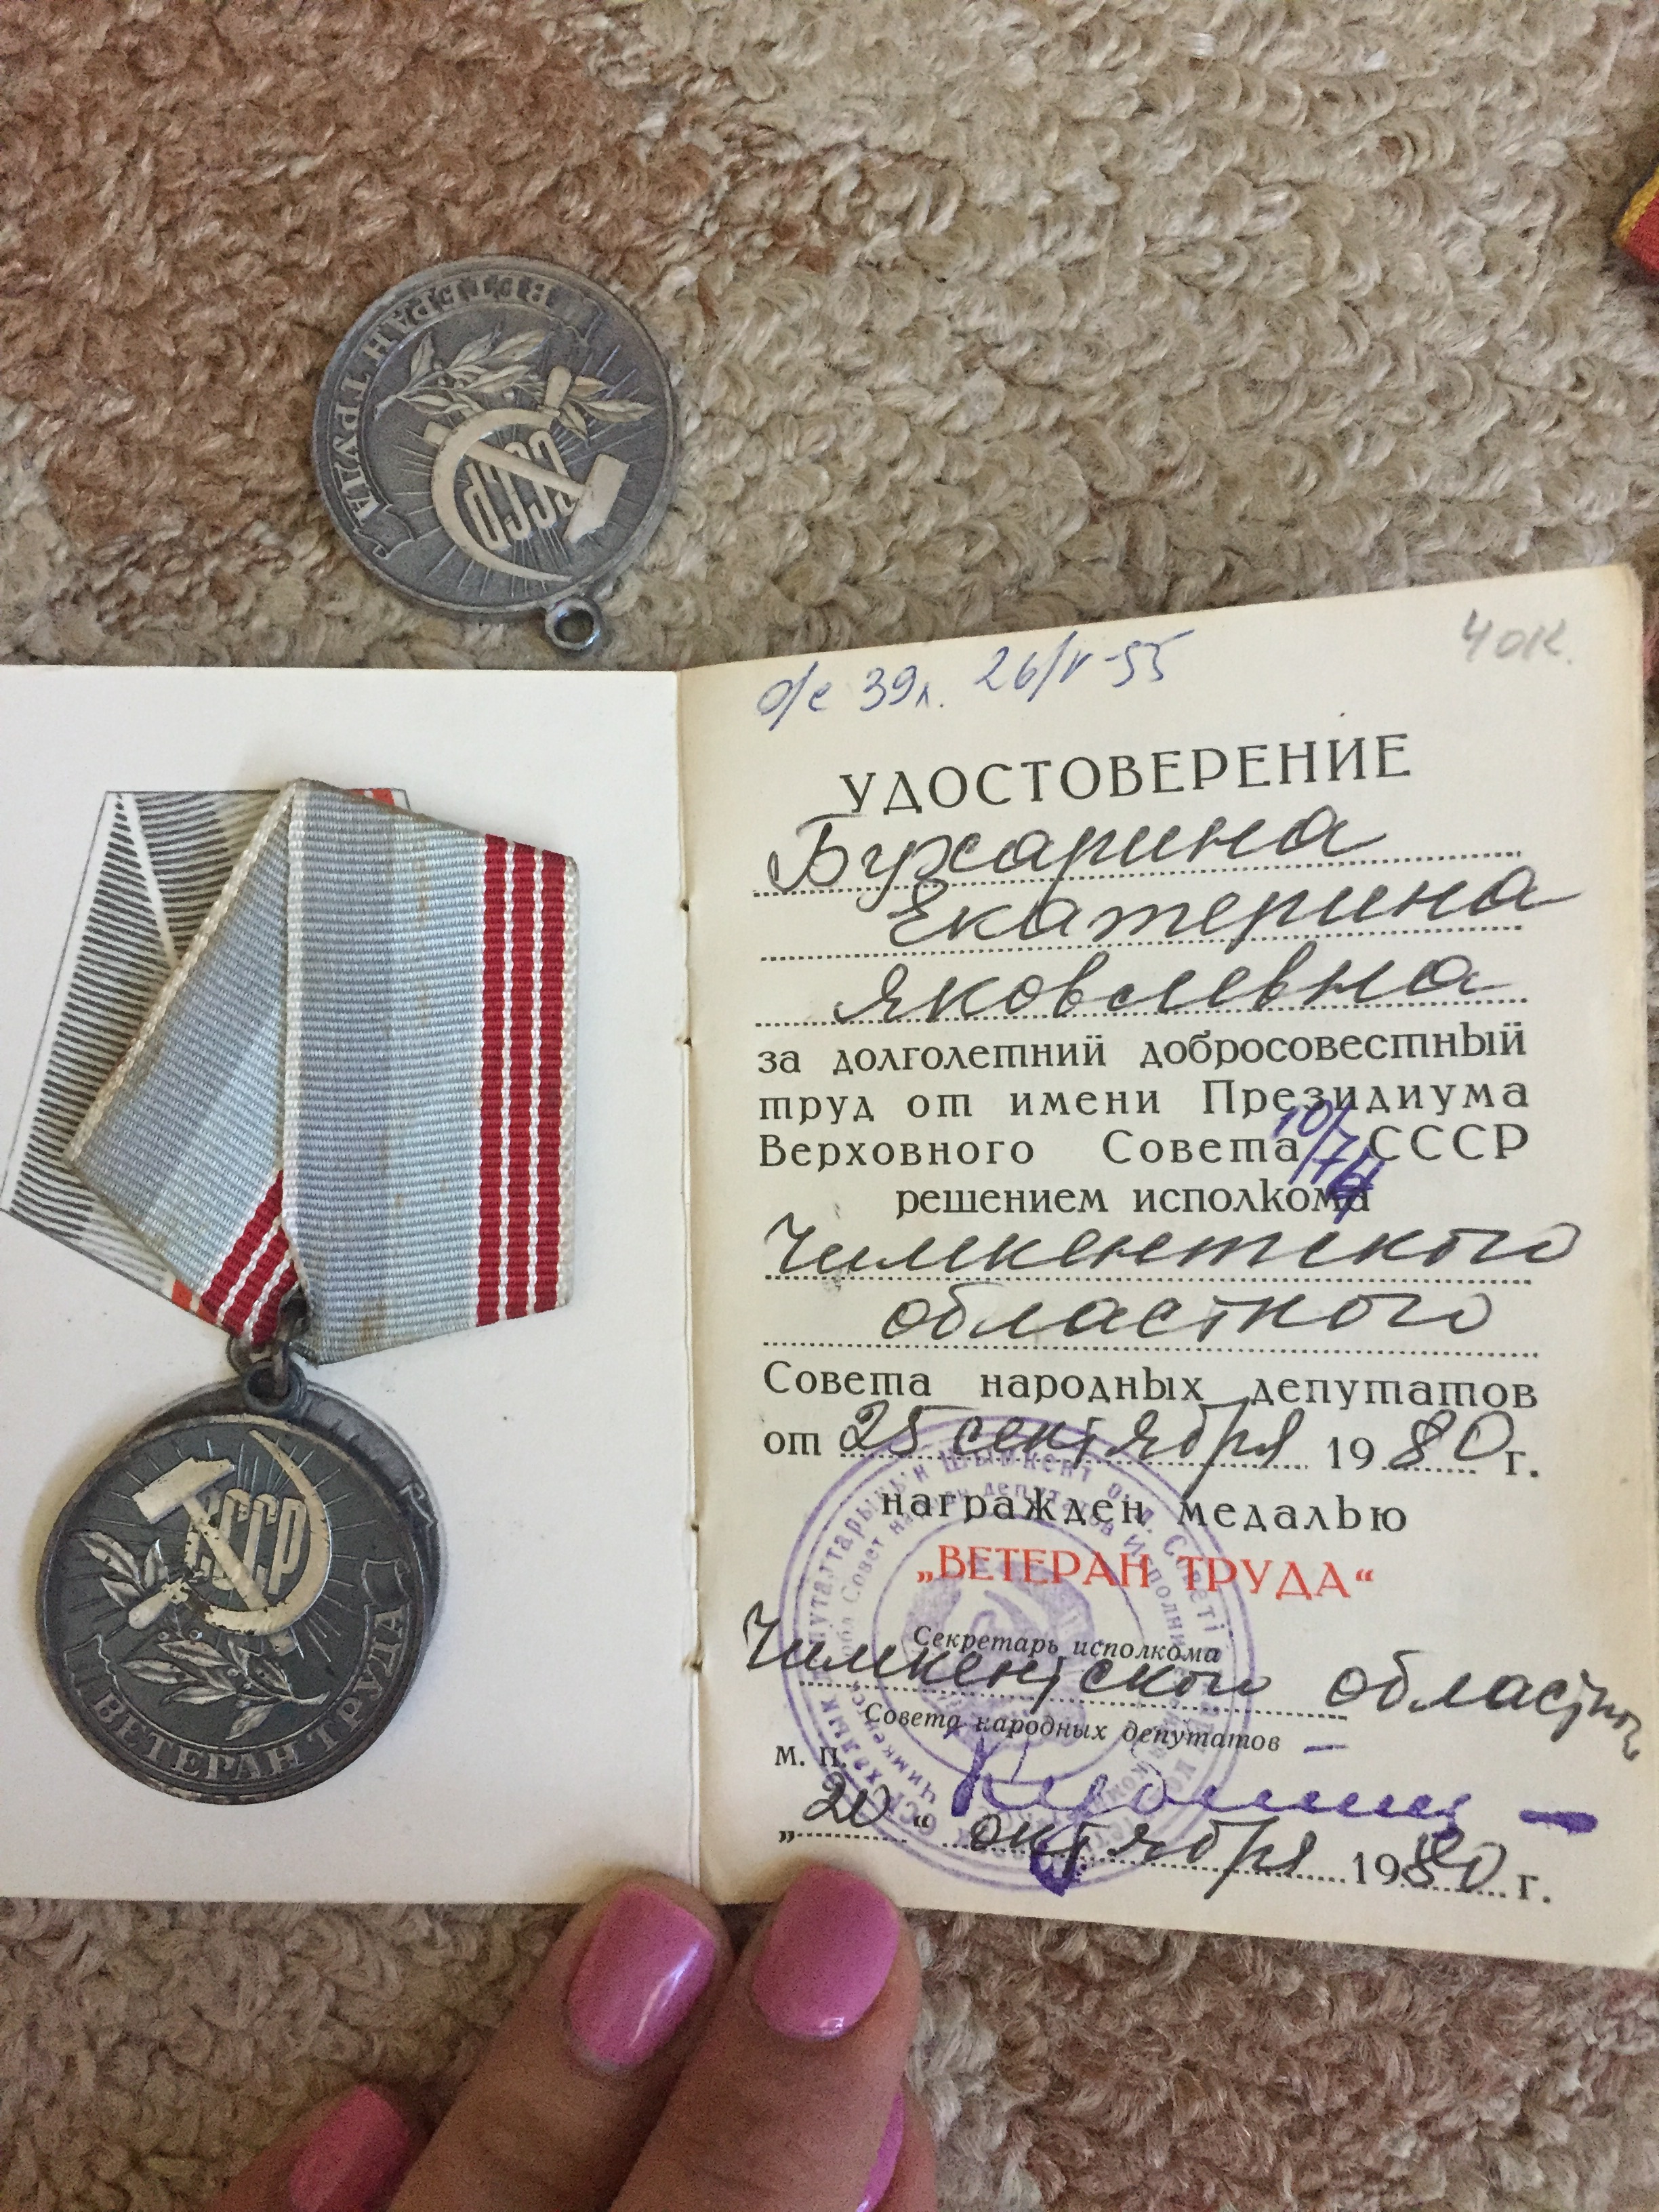 ВЕТЕРАН ТРУДА
СССР
40к.
о/с 39л. 26/V-55
УДОСТОВЕРЕНИЕ
Бухарина
Екатерина
Яковлевна
за долголетний добросовестный
труд от имени Президиума
Верховного Совета СССР
решением исполкома
Чимкентского
областного
Совета народных депутатов
от 25 сентября 1980 г.
награжден медалью
„ВЕТЕРАН ТРУДА“
Секретарь исполкома
Чимкентского областного
Совета народных депутатов
м. п.
„20“ октября 1980 г.
СССР
ВЕТЕРАН ТРУДА